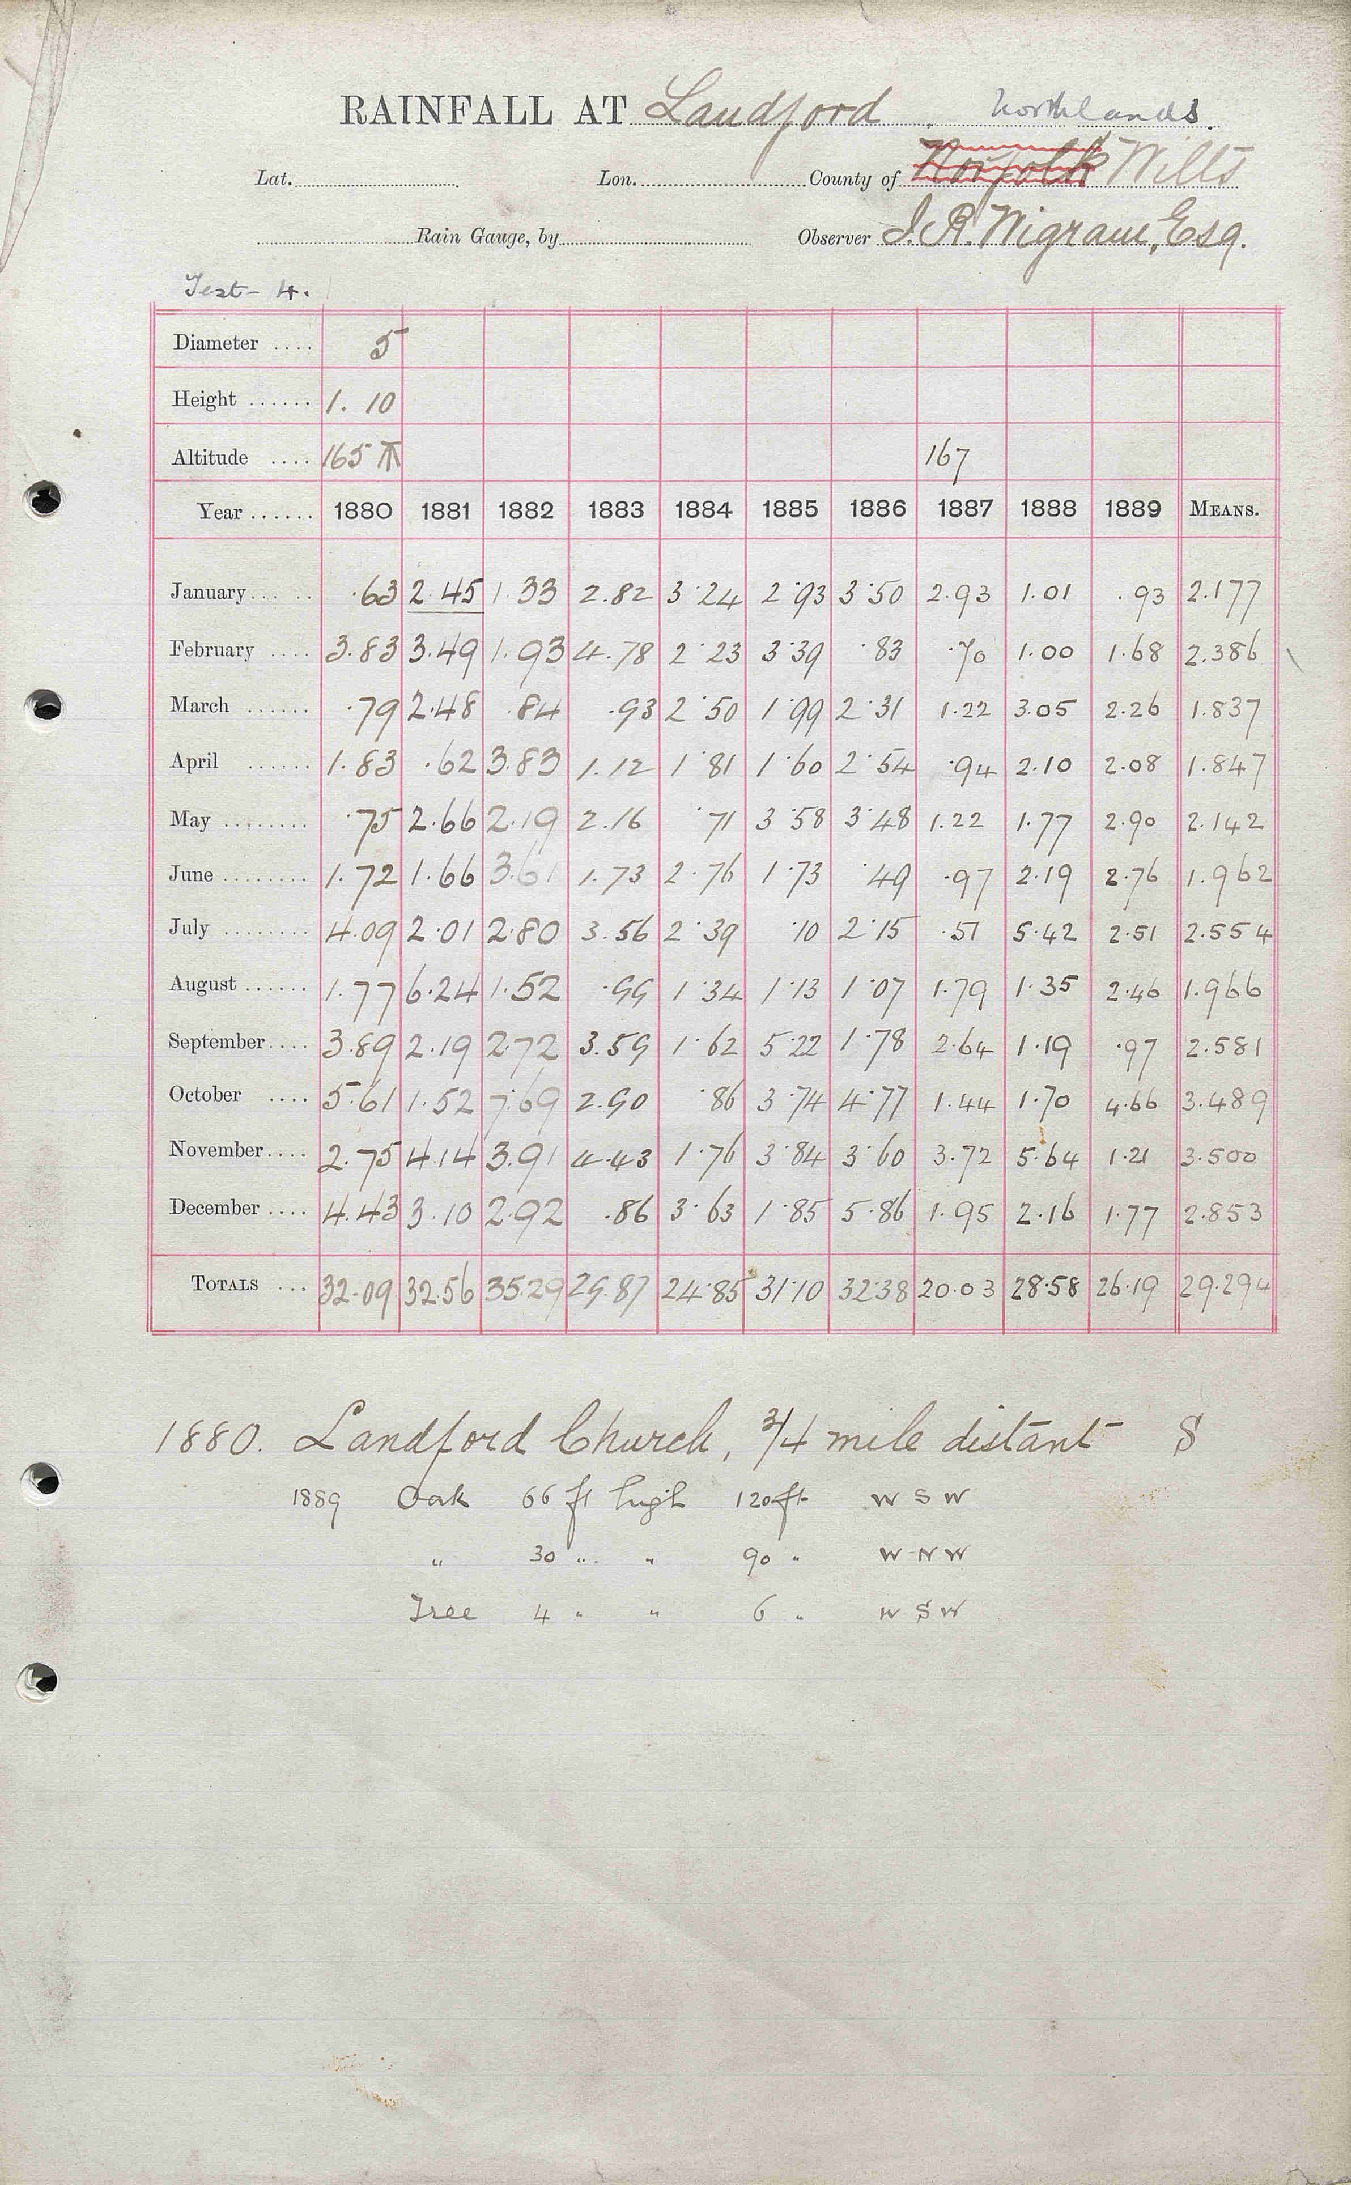 RAINFALL AT Landford, Northlands.
Lat. Lon. County of Norfolk Wilts
Rain Gauge, by Observer J. R. Wigram, Esq.
Test 4.
Diameter .... 5
Height ...... 1. 10
Altitude .... 165 167
Year ...... 1880 1881 1882 1883 1884 1885 1886 1887 1888 1889 MEANS.
January ...... .63 2.45 1.33 2.82 3.24 2.93 3.50 2.93 1.01 .93 2.177
February .... 3.83 3.49 1.93 4.78 2.23 3.39 .83 .70 1.00 1.68 2.386
March ...... .79 2.48 .84 .93 2.50 1.99 2.31 1.22 3.05 2.26 1.837
April ...... 1.83 .62 3.83 1.12 1.81 1.60 2.54 .94 2.10 2.08 1.847
May ........ .75 2.66 2.19 2.16 .71 3.58 3.48 1.22 1.77 2.90 2.142
June ........ 1.72 1.66 3.61 1.73 2.76 1.73 .49 .97 2.19 2.76 1.962
July ........ 4.09 2.01 2.80 3.56 2.39 .10 2.15 .51 5.42 2.51 2.554
August ...... 1.77 6.24 1.52 .99 1.34 1.13 1.07 1.79 1.35 2.46 1.966
September .... 3.89 2.19 2.72 3.59 1.62 5.22 1.78 2.64 1.19 .97 2.581
October .... 5.61 1.52 7.69 2.90 .86 3.74 4.77 1.44 1.70 4.66 3.489
November .... 2.75 4.14 3.91 4.43 1.76 3.84 3.60 3.72 5.64 1.21 3.500
December .... 4.43 3.10 2.92 .86 3.63 1.85 5.86 1.95 2.16 1.77 2.853
TOTALS ... 32.09 32.56 35.29 29.87 24.85 31.10 32.38 20.03 28.58 26.19 29.294
1880. Landford Church, 3/4 mile distant S
1889 Oak 66 ft high 120 ft W S W
" 30 " " 90 " W N W
Tree 4 " " 6 " W S W